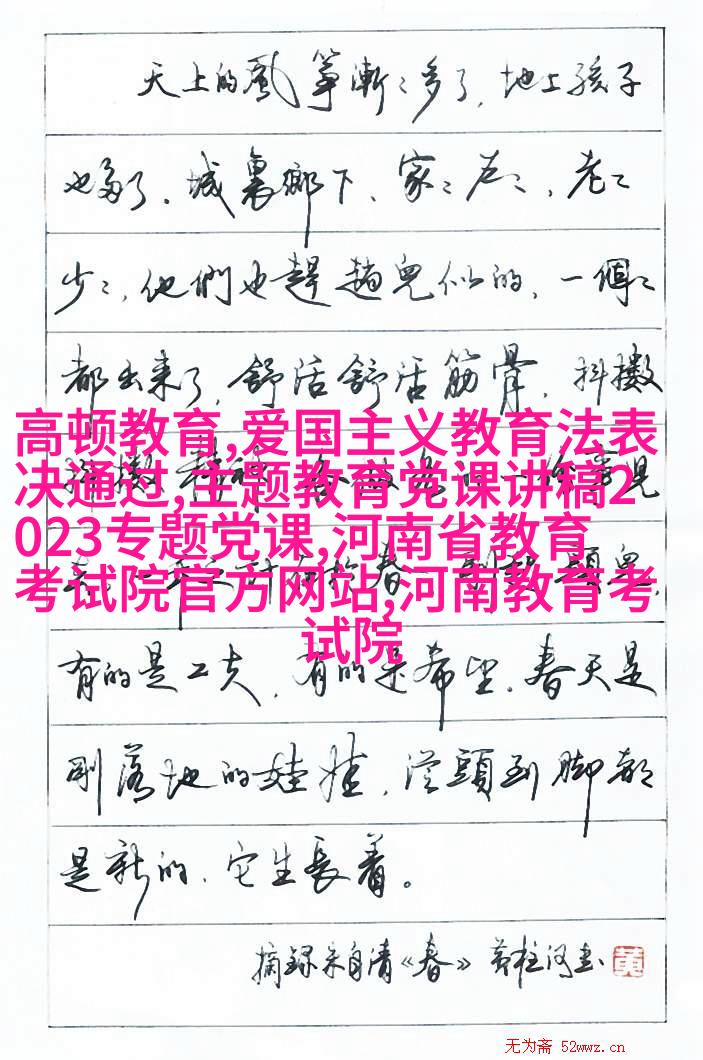 天上的風箏漸〻多了,地上孩子
也多了。城裏鄉下、家〻户〻,老〻
少〻,他們也趕趟兒似的,一個〻
都出来了,舒活舒活筋骨,抖擻
高顿教育,爱国主义教育法表
决通过,主题教育党课讲稿2
023专题党课,河南省教育
考试院官方网站,河南教育考
试院
有的是工夫,有的是希望。春天是
剛落地的娃娃,從頭到脚都
是新的,它生長着。
摘録朱自清《春》 黄柱河书
黄
无为斋 52wwz.cn